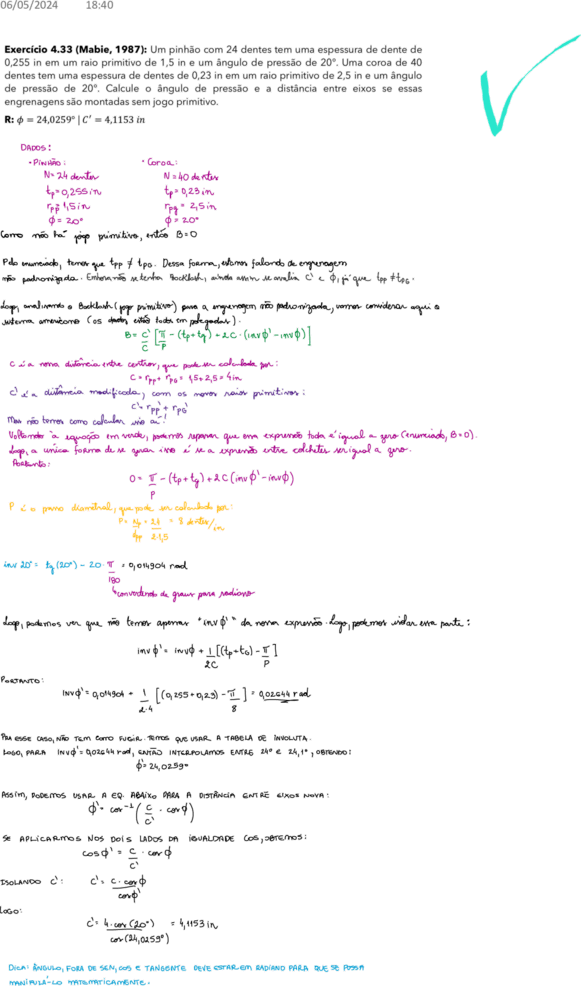 06/05/2024 18:40
Exercício 4.33 (Mabie, 1987): Um pinhão com 24 dentes tem uma espessura de dente de
0,255 in em um raio primitivo de 1,5 in e um ângulo de pressão de 20°. Uma coroa de 40
dentes tem uma espessura de dentes de 0,23 in em um raio primitivo de 2,5 in e um ângulo
de pressão de 20°. Calcule o ângulo de pressão e a distância entre eixos se essas
engrenagens são montadas sem jogo primitivo.
R: ϕ = 24,0259° | C′ = 4,1153 in
DADOS:
• PINHÃO: • Coroa:
N= 24 dentes N= 40 dentes
tp= 0,255 in tp= 0,23 in
rpp= 1,5 in rpg= 2,5 in
ϕ = 20° ϕ = 20°
Como não há jogo primitivo, então B=0
Pelo enunciado, temos que tpp ≠ tpg. Dessa forma, estamos falando de engrenagem
não padronizada. Embora não se tenha Backlash, ainda assim se avalia C' e ϕ, já que tpp ≠ tpg.
Logo, analisando o Backlash (jogo primitivo) para a engrenagem não padronizada, vamos considerar aqui o
sistema americano (os dados estão todos em polegadas).
B= C'/C [π/P - (tp+tg) + 2C·(invϕ' - invϕ)]
C é a nova distância entre centros, que pode ser calculada por:
C= rpp + rpg = 1,5+2,5 = 4in
C' é a distância modificada, com os novos raios primitivos:
C'= rpp' + rpg'
Mas não temos como calcular isso aí!
Voltando à equação em verde, podemos reparar que essa expressão toda é igual a zero (enunciado, B=0).
Logo, a única forma de se zerar isso é se a expressão entre colchetes ser igual a zero.
Portanto:
0 = π/P - (tp+tg) + 2C (invϕ' - invϕ)
P é o passo diametral, que pode ser calculado por:
P= Np/dpp = 24/2·1,5 = 8 dentes/in
inv 20° = tg (20°) - 20·π/180 = 0,014904 rad
↳ convertendo de graus para radianos
Logo, podemos ver que não temos apenas "invϕ'" da nossa expressão. Logo, podemos isolar essa parte:
invϕ' = invϕ + 1/2C [(tp+tg) - π/P]
PORTANTO:
invϕ' = 0,014904 + 1/2·4 [(0,255+0,23) - π/8] = 0,02644 rad
PRA ESSE CASO, NÃO TEM COMO FUGIR. TEMOS QUE USAR A TABELA DE INVOLUTA.
LOGO, PARA INVϕ' = 0,02644 rad, ENTÃO INTERPOLAMOS ENTRE 24° E 24,1°, OBTENDO:
ϕ'= 24,0259°
ASSIM, PODEMOS USAR A EQ. ABAIXO PARA A DISTÂNCIA ENTRE EIXOS NOVA:
ϕ'= cos⁻¹ (C/C' · cosϕ)
SE APLICARMOS NOS DOIS LADOS DA IGUALDADE COS, OBTEMOS:
cosϕ' = C/C' · cosϕ
ISOLANDO C': C' = C·cosϕ/cosϕ'
LOGO:
C'= 4·cos(20°)/cos(24,0259°) = 4,1153 in
DICA: ÂNGULO, FORA DE SEN, COS E TANGENTE DEVE ESTAR EM RADIANO PARA QUE SE POSSA
MANIPULÁ-LO MATEMATICAMENTE.